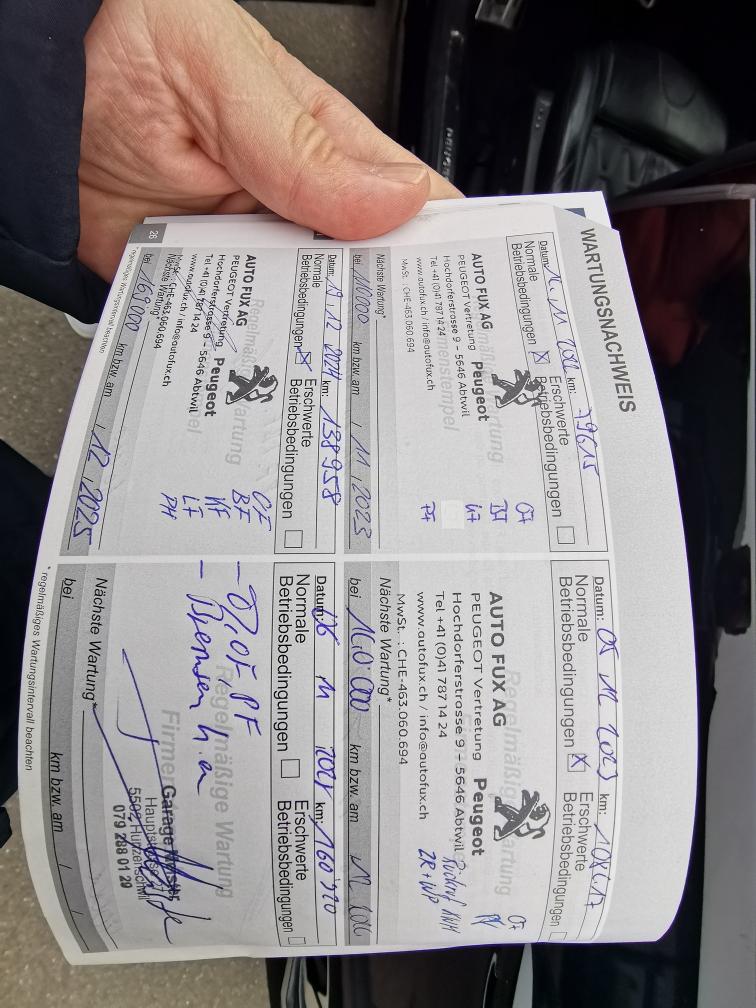 WARTUNGSNACHWEIS
Datum: km: 79615
Normale Betriebsbedingungen ☒ Erschwerte Betriebsbedingungen ☐
AUTO FUX AG
PEUGEOT Vertretung Peugeot
Hochdorferstrasse 9 - 5646 Abtwil
Tel +41 (0)41 787 14 24
www.autofux.ch / info@autofux.ch
MwSt. : CHE-463.060.694
Nächste Wartung*
bei km bzw. am 11, 2023
Datum: 19 12 2024 km: 138958
Normale Betriebsbedingungen ☒ Erschwerte Betriebsbedingungen ☐
Regelmäßige Wartung
AUTO FUX AG
PEUGEOT Vertretung Peugeot
Hochdorferstrasse 9 - 5646 Abtwil
Tel +41 (0)41 787 14 24
www.autofux.ch / info@autofux.ch
MwSt.: CHE-463.060.694
ÖF
BF
KF
LF
PH
Nächste Wartung*
bei 169000 km bzw. am 12, 2025
26
*regelmäßiges Wartungsintervall beachten
Datum: 05 12 2023 km:
Normale Betriebsbedingungen ☒ Erschwerte Betriebsbedingungen ☐
Regelmäßige Wartung
AUTO FUX AG
PEUGEOT Vertretung Peugeot
Hochdorferstrasse 9 - 5646 Abtwil
Tel +41 (0)41 787 14 24
www.autofux.ch / info@autofux.ch
MwSt. : CHE-463.060.694
ZR + WP
Nächste Wartung*
bei km bzw. am
Datum: 11 km: 160'920
Normale Betriebsbedingungen ☐ Erschwerte Betriebsbedingungen ☐
Regelmäßige Wartung
- Bremsen h.a
Garage
5502 Hunzenschwil
079 288 01 29
Nächste Wartung*
bei km bzw. am /
* regelmäßiges Wartungsintervall beachten